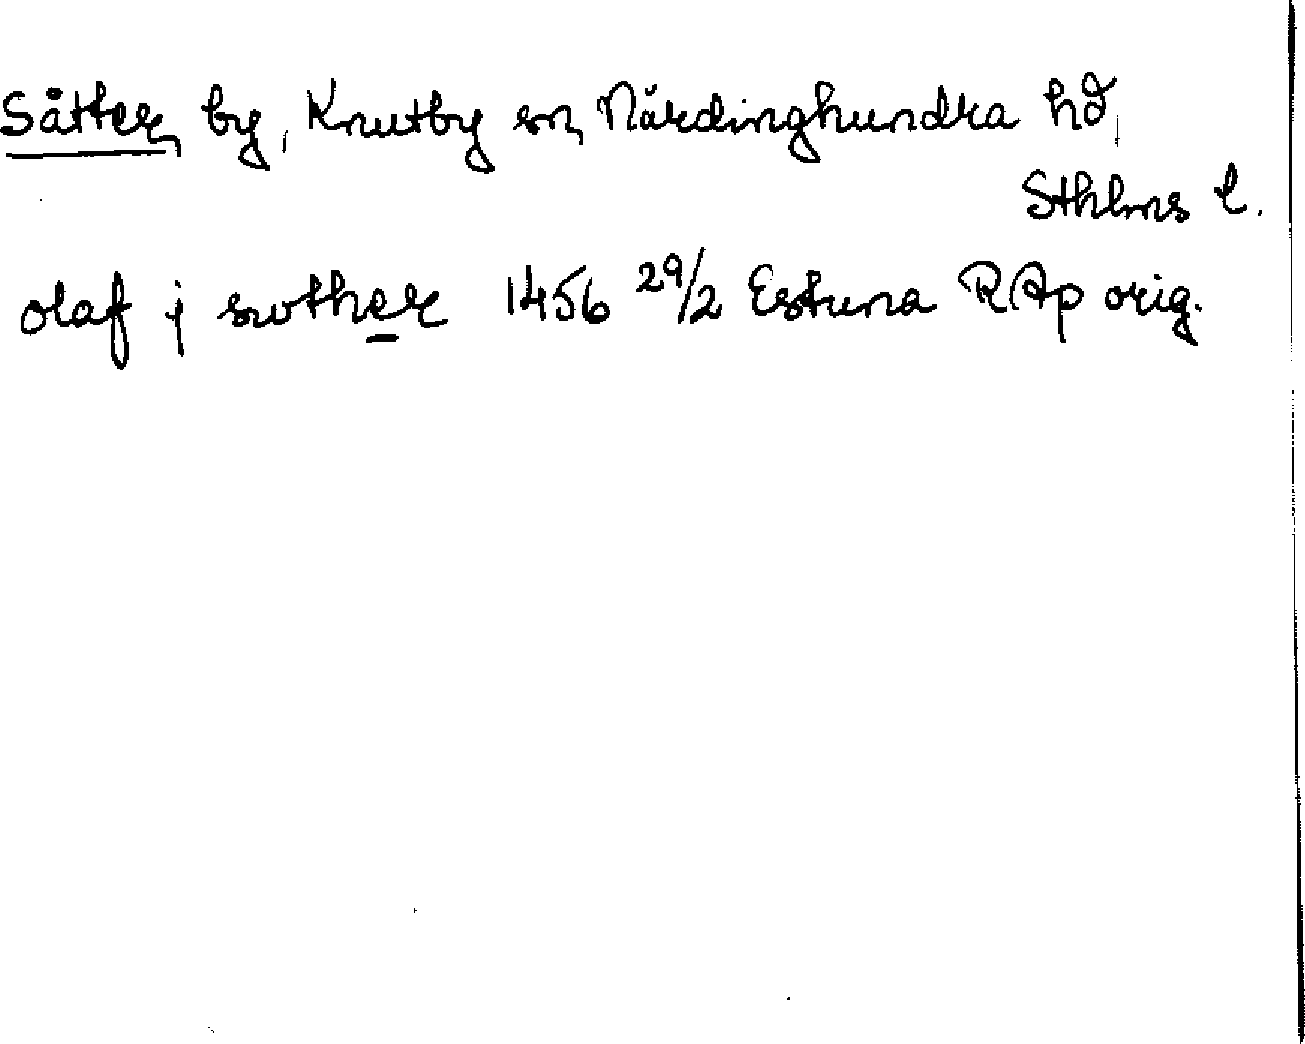 Sätter, by, Knutby sn, Närdinghundra hd,
Sthlms l.
olaf j swther 1456 29/2 Estuna RAp orig.